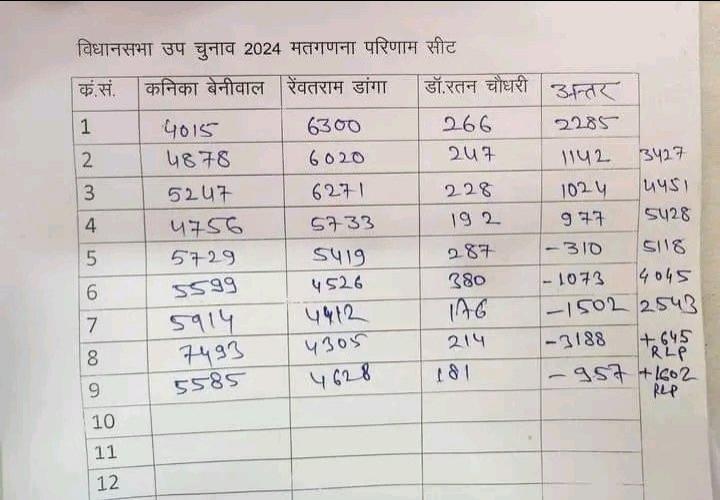 विधानसभा उप चुनाव 2024 मतगणना परिणाम सीट
क्रं.सं. कनिका बेनीवाल रेंवतराम डांगा डॉ.रतन चौधरी अन्तर
1 4015 6300 266 2285
2 4878 6020 247 1142 3427
3 5247 6271 228 1024 4451
4 4756 5733 192 977 5428
5 5729 5419 287 -310 5118
6 5599 4526 380 -1073 4045
7 5914 4412 176 -1502 2543
8 7493 4305 214 -3188 +645
RLP
9 5585 4628 181 -957 +1602
RLP
10
11
12